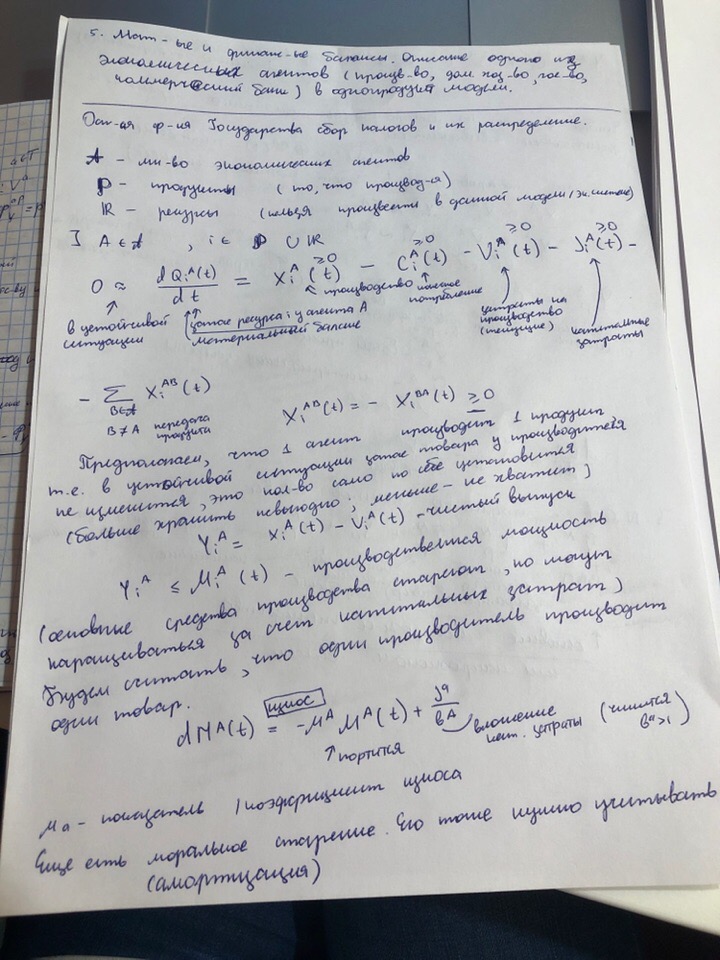 5. Мат-ые и финанс-ые балансы. Описание одного из
экономических агентов (произв-во, дом хоз-во, гос-во,
коммерческий банк) в однопродукт модели.
Осн-ая ф-ия Государства сбор налогов и их распределение.
A - мн-во экономических агентов
P - продукты (то, что производ-я)
R - ресурсы (нельзя произвести в данной модели/эк. системе)
] A ∈ A, i ∈ P ∪ R
≥0 ≥0 ≥0 ≥0
0 ≈ dQiᴬ(t)/dt = Xiᴬ(t) - Ciᴬ(t) - Viᴬ(t) - Jiᴬ(t) -
в устойчивой ситуации
запас ресурса i у агента A
материальный баланс
производство
конечное потребление
затраты на производство (текущие)
капитальные затраты
- Σ Xiᴬᴮ(t)
B∈A
B≠A передача продукта
Xiᴬᴮ(t) = - Xiᴮᴬ(t) ≥ 0
Предполагаем, что 1 агент производит 1 продукт,
т.е. в устойчивой ситуации запас товара у производителя
не изменится, это кол-во само по себе установится
(больше хранить невыгодно; меньше - не хватит)
Yiᴬ = Xiᴬ(t) - Viᴬ(t) - чистый выпуск
Yiᴬ ≤ Miᴬ(t) - производственная мощность
(основные средства производства стареют, но могут
наращиваться за счет капитальных затрат)
Будем считать, что один производитель производит
один товар.
износ
dMᴬ(t) = -μᴬ Mᴬ(t) + Jᴬ/bᴬ
портится
вложение
кап. затраты
μa - показатель / коэффициент износа
Еще есть моральное старение. Его тоже нужно учитывать
(амортизация)